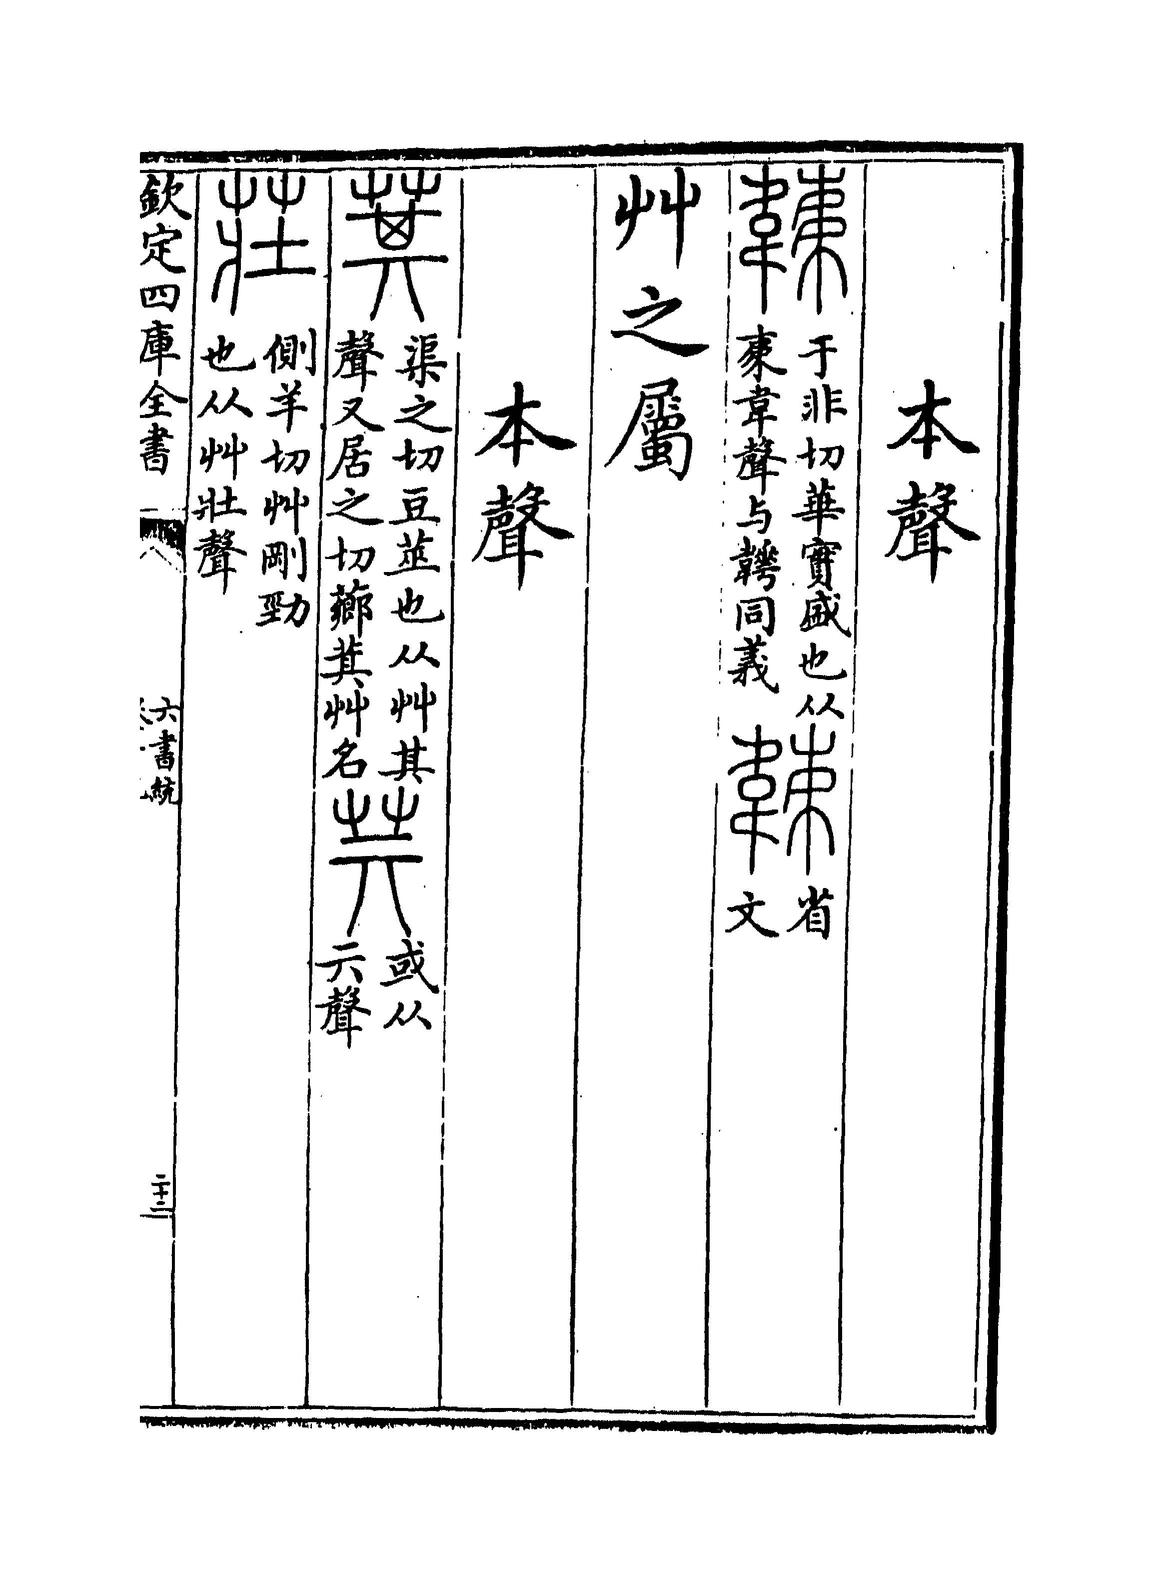 本聲
于非切華實盛也从
𣐺韋聲与韡同義
省
文
艸之屬
本聲
渠之切豆莖也从艸其
聲又居之切薌萁艸名
或从
亓聲
側羊切艸剛勁
也从艸壯聲
欽定四庫全書
六書統
二十二